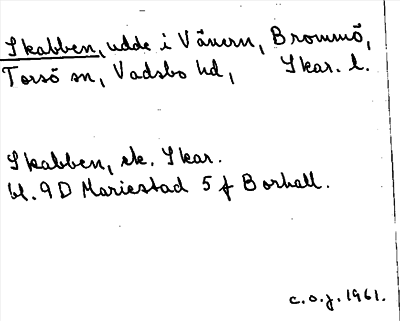 Skabben, udde i Vänern, Brommö,
Torsö sn, Vadsbo hd, Skar. l.
Skabben, ek. Skar.
bl. 9 D Mariestad 5 f Borhall.
c.o.j. 1961.